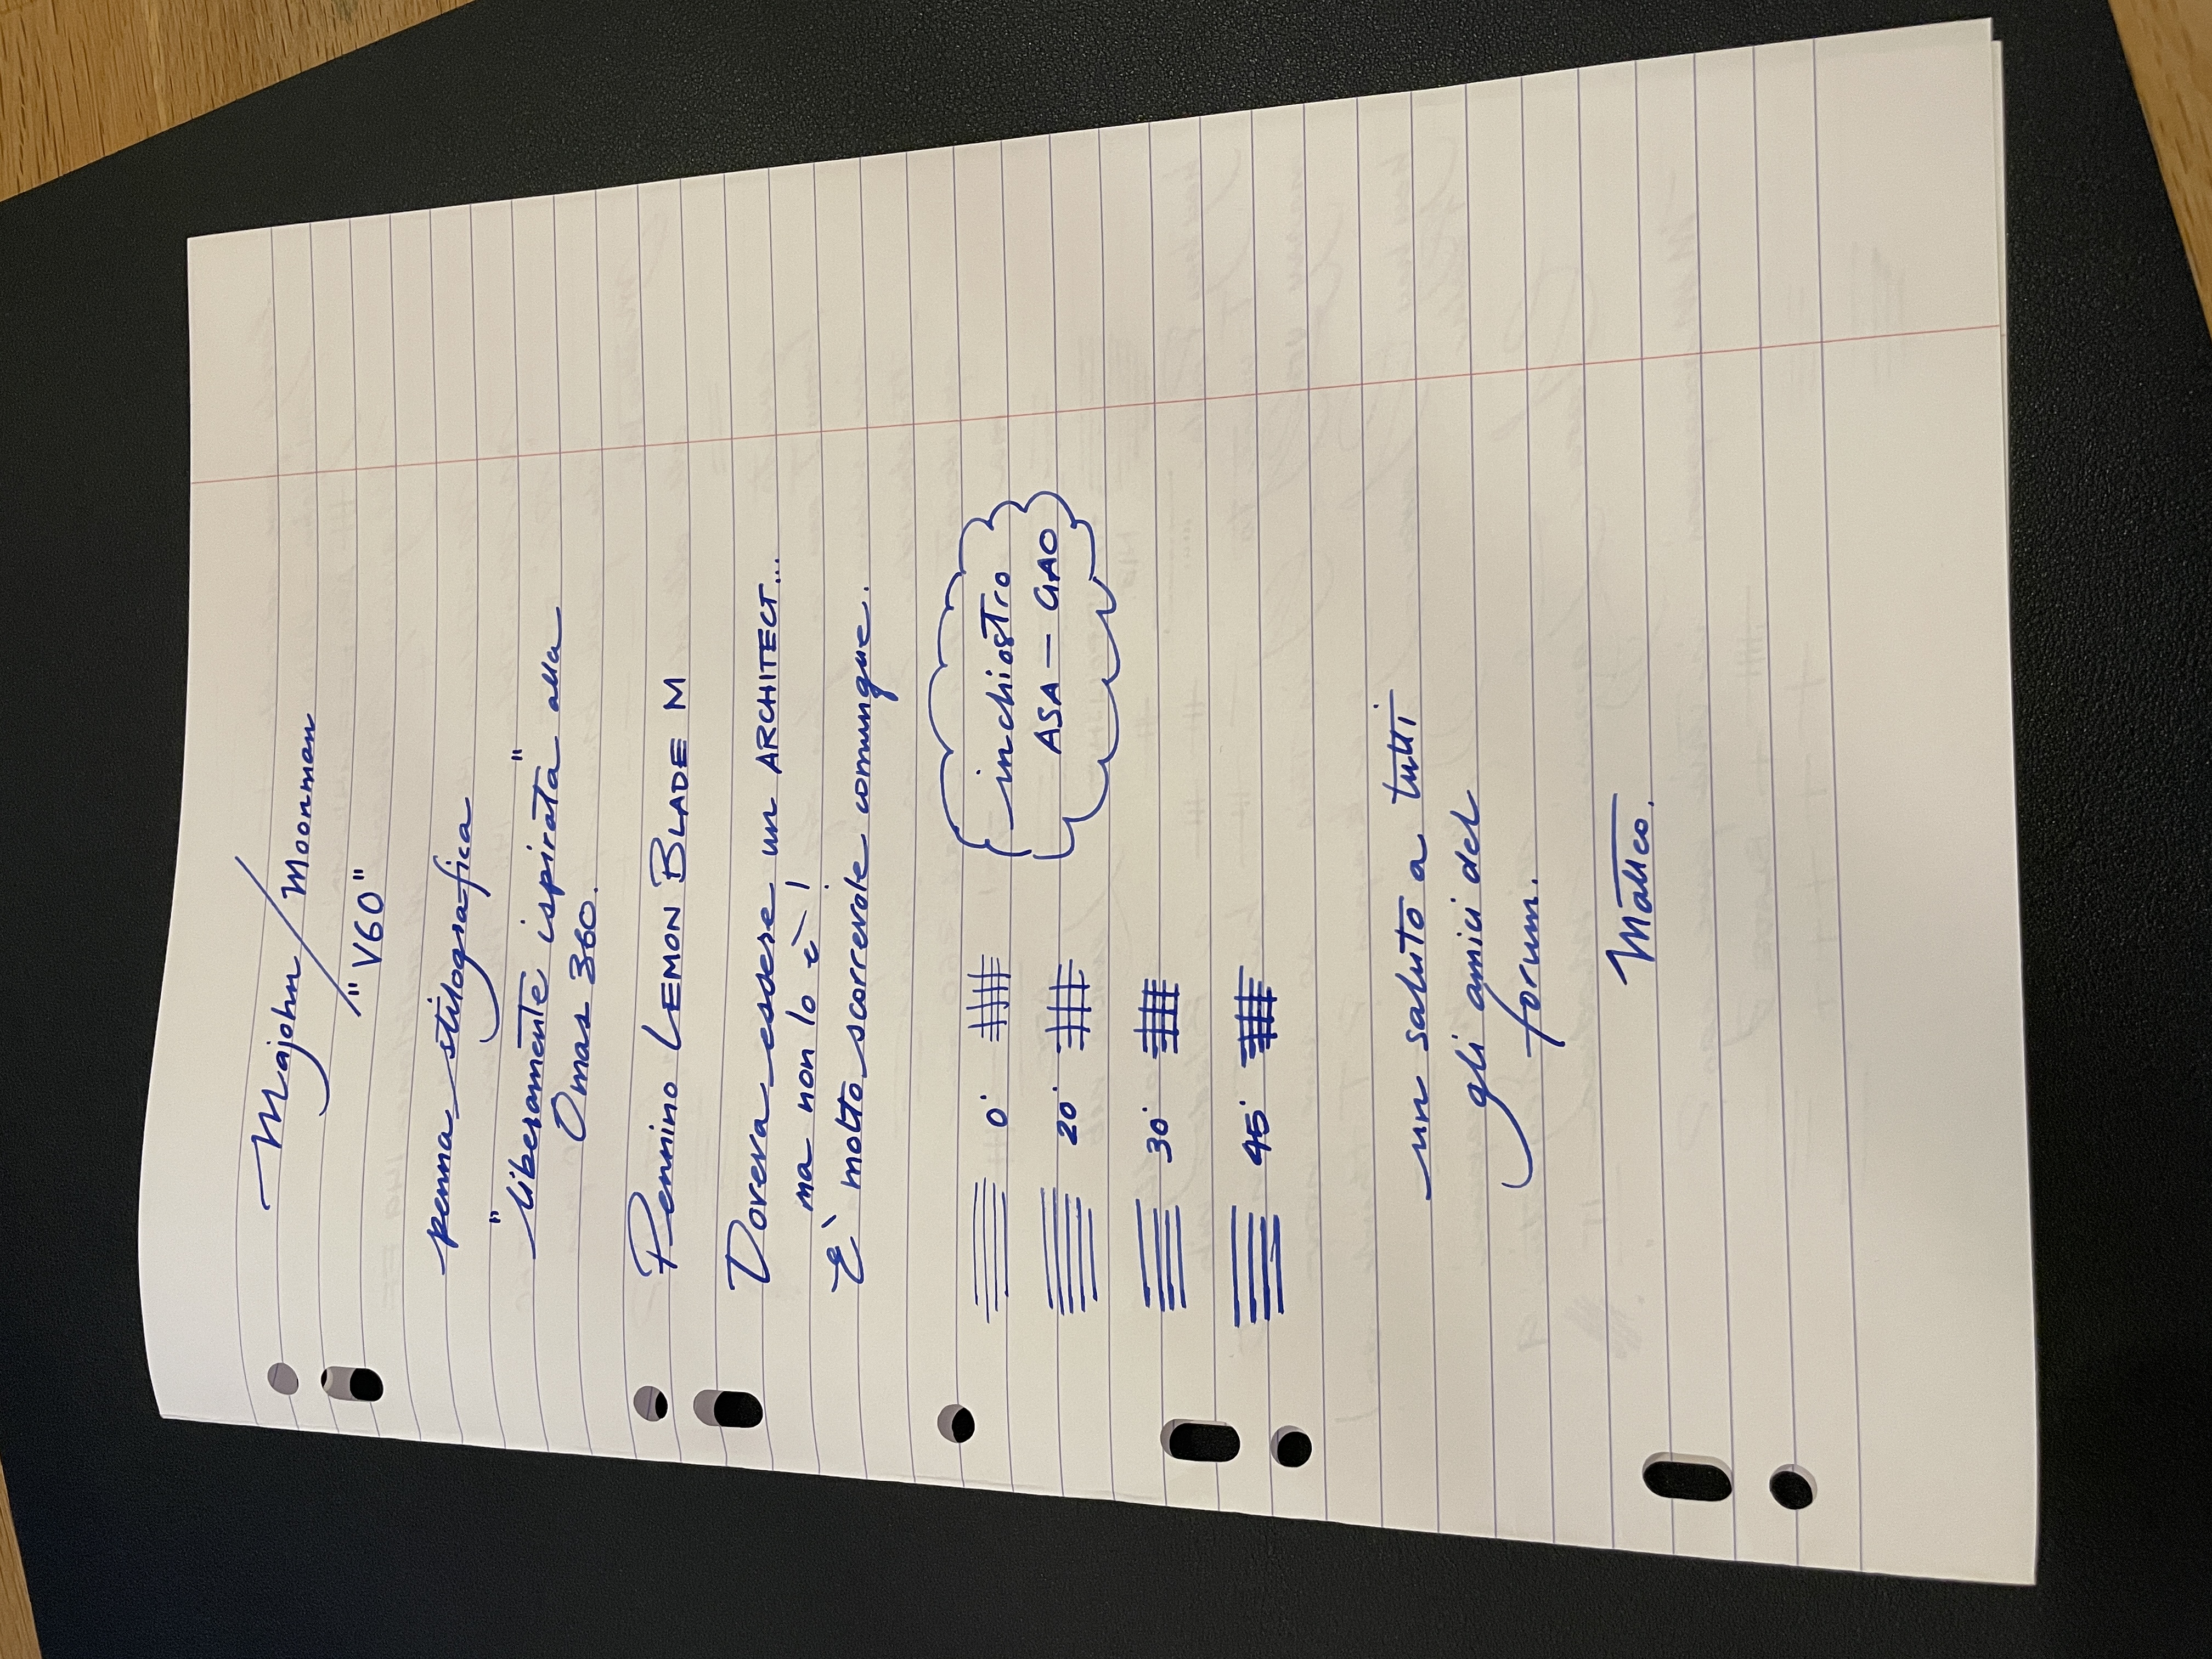 Majohn / Moonman
"V60"
penna stilografica
"liberamente ispirata" alla
Omas 360.
Pennino LEMON BLADE M
Doveva essere un ARCHITECT...
ma non lo è!
È molto scorrevole comunque.
inchiostro
ASA - GAO
0°
20°
30°
45°
un saluto a tutti
gli amici del
forum.
Matteo.